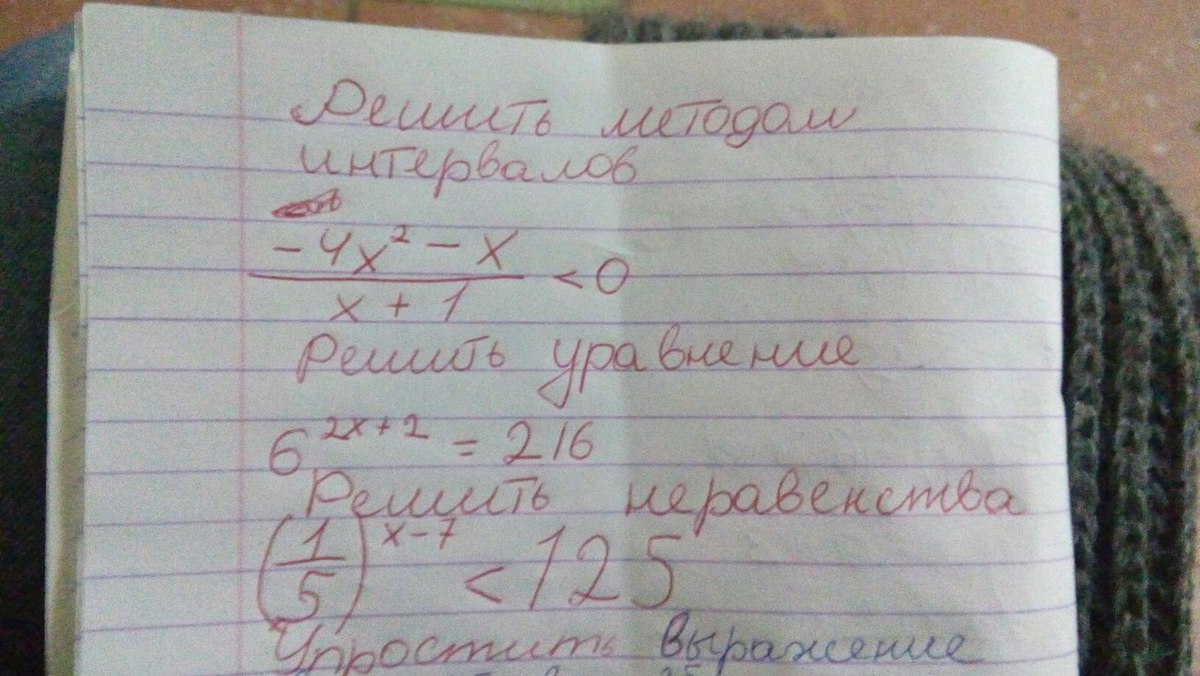 Решить методом
интервалов
-4x² - x
x + 1
< 0
Решить уравнение
6^{2x+2} = 216
Решить неравенства
(1/5)^{x-7} < 125
Упростить выражение